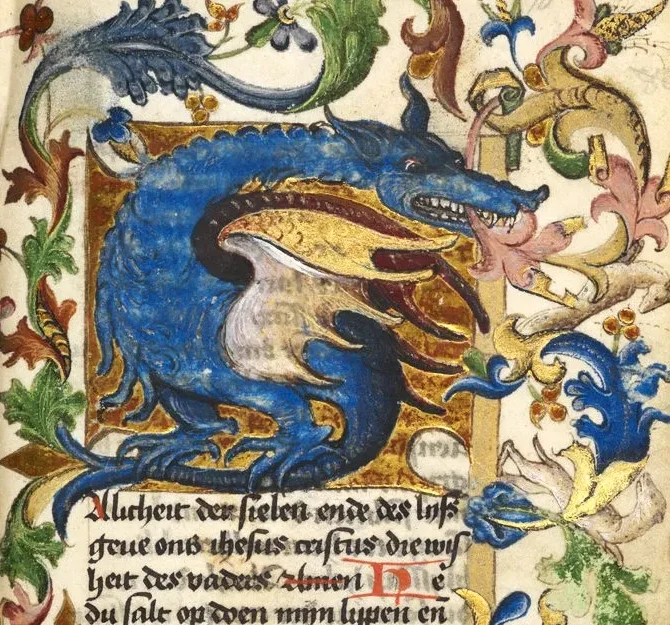 Alicheit der sielen ende des lyfs
geue ons ihesus cristus die wijs
heit des vaders Amen H e
du salt op doen mijn lyppen en